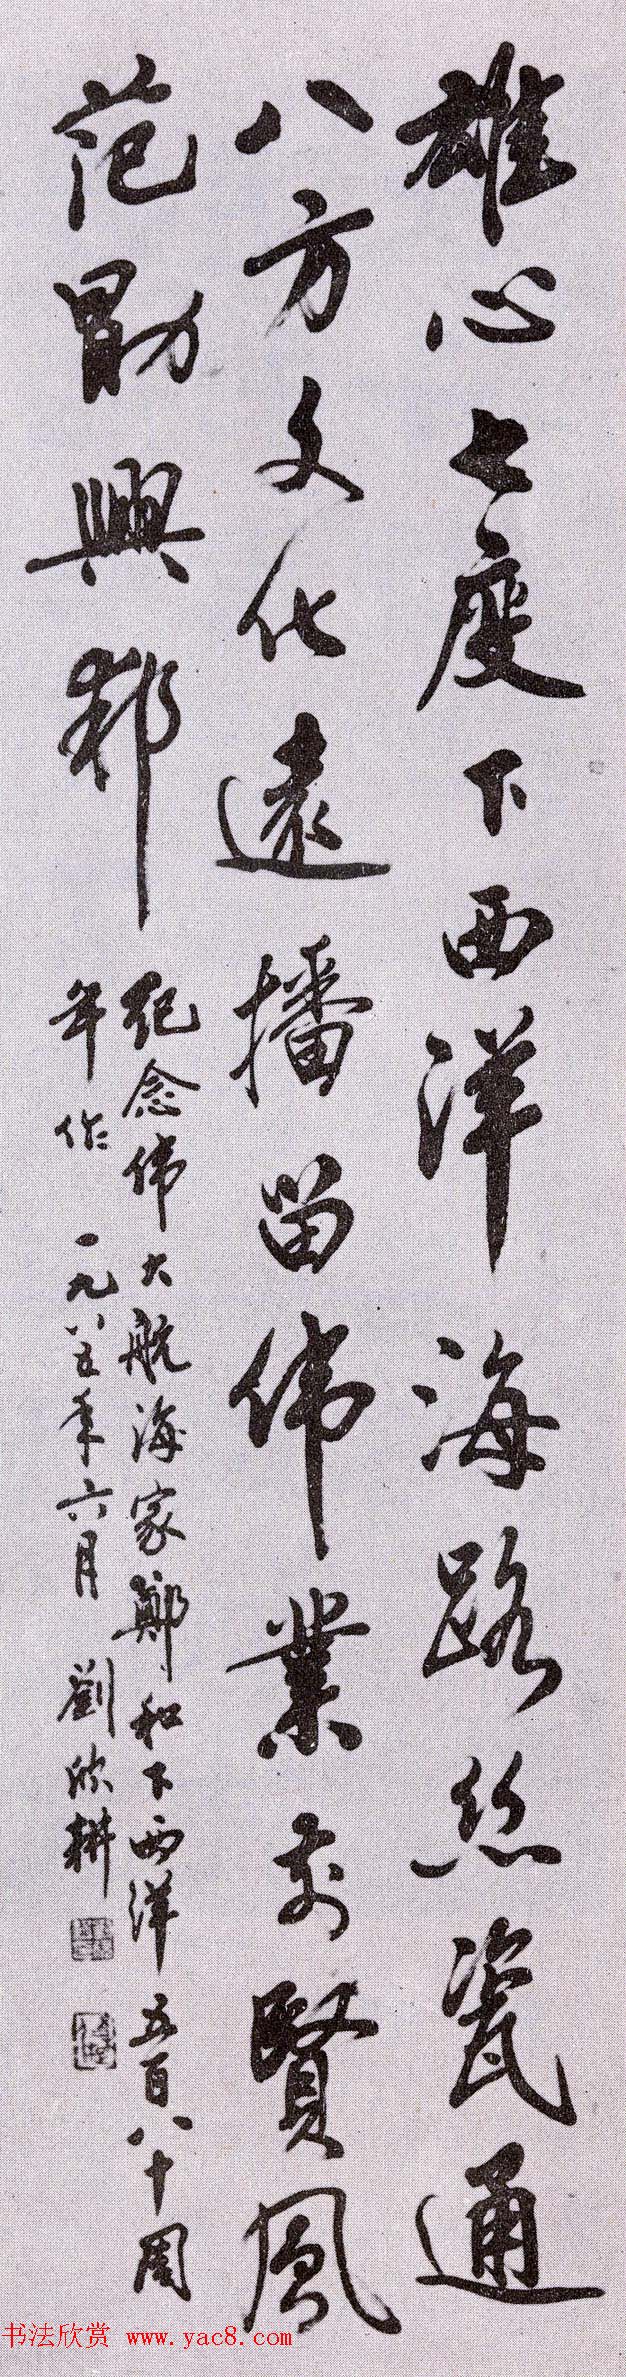 雄心七度下西洋海路丝瓷通
八方文化遠播留伟業前賢風
范勖興邦
纪念伟大航海家鄭和下西洋五百八十周
年作 一九八五年六月 劉欣耕
书法欣赏 www.yac8.com